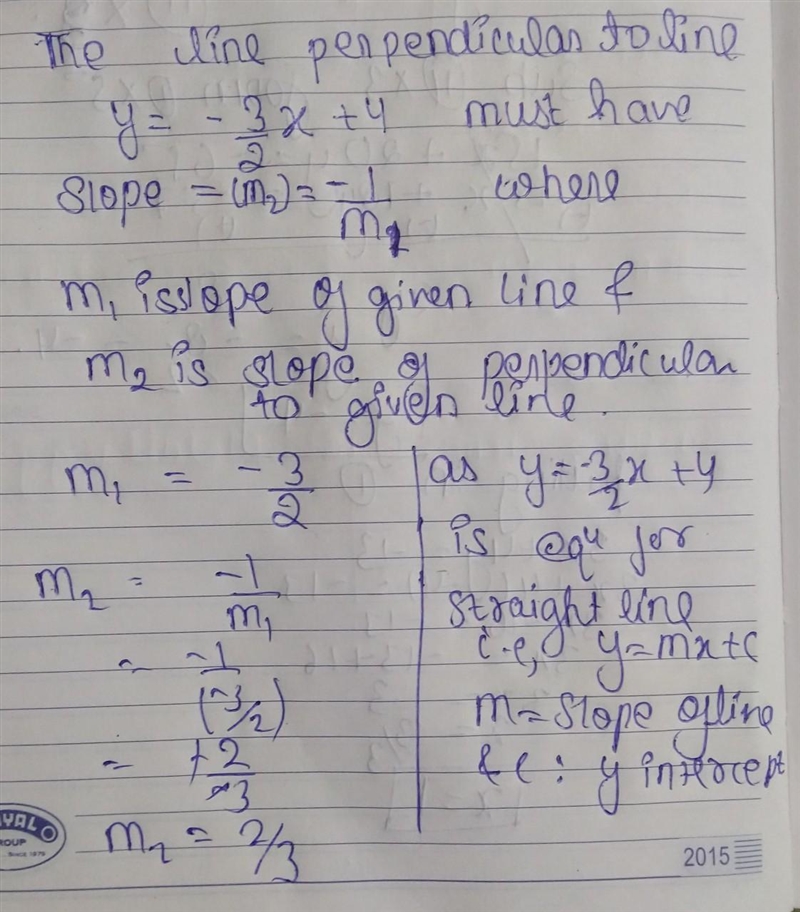 The line perpendicular to line
y = -3/2 x + 4 must have
Slope = (m₂) = -1/m₁ where
m₁ is slope of given line &
m₂ is slope of perpendicular
to given line.
m₁ = -3/2
m₂ = -1/m₁
= -1/(-3/2)
= +2/+3
m₂ = 2/3
as y = -3/2 x + 4
is eqⁿ for
straight line
i.e, y = mx + c
m = slope of line
& c : y intercept
OYAL
GROUP
Since 1975
2015